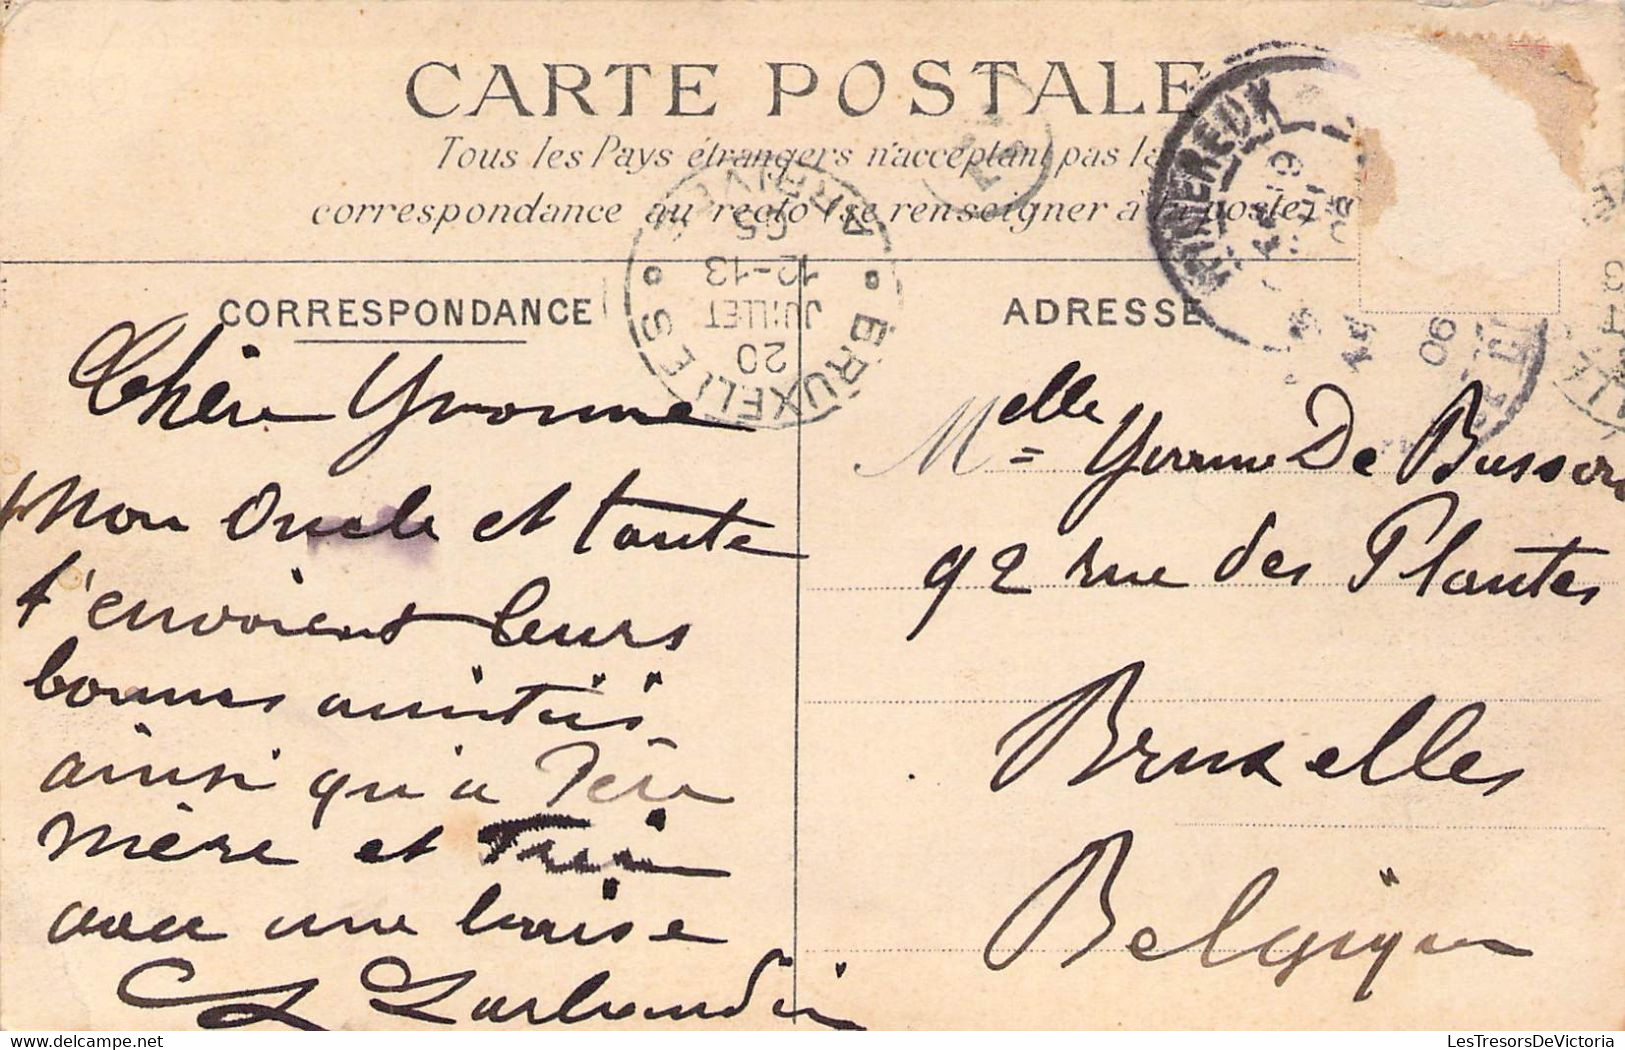 CARTE POSTALE
Tous les Pays étrangers n'acceptant pas la
correspondance au recto (se renseigner à la poste)
CORRESPONDANCE
Chère Yvonne
Mon Oncle et tante
t'envoient leurs
bonnes amitiés
ainsi qu'a Père
mère et
avec une braise
ADRESSE
Melle Yvonne De Bussere
92 rue des Plantes
Bruxelles
Belgique
BRUXELLES
ARRIVÉE
20
JUILLET
12-13
05
WIMEREUX
LesTresorsDeVictoria